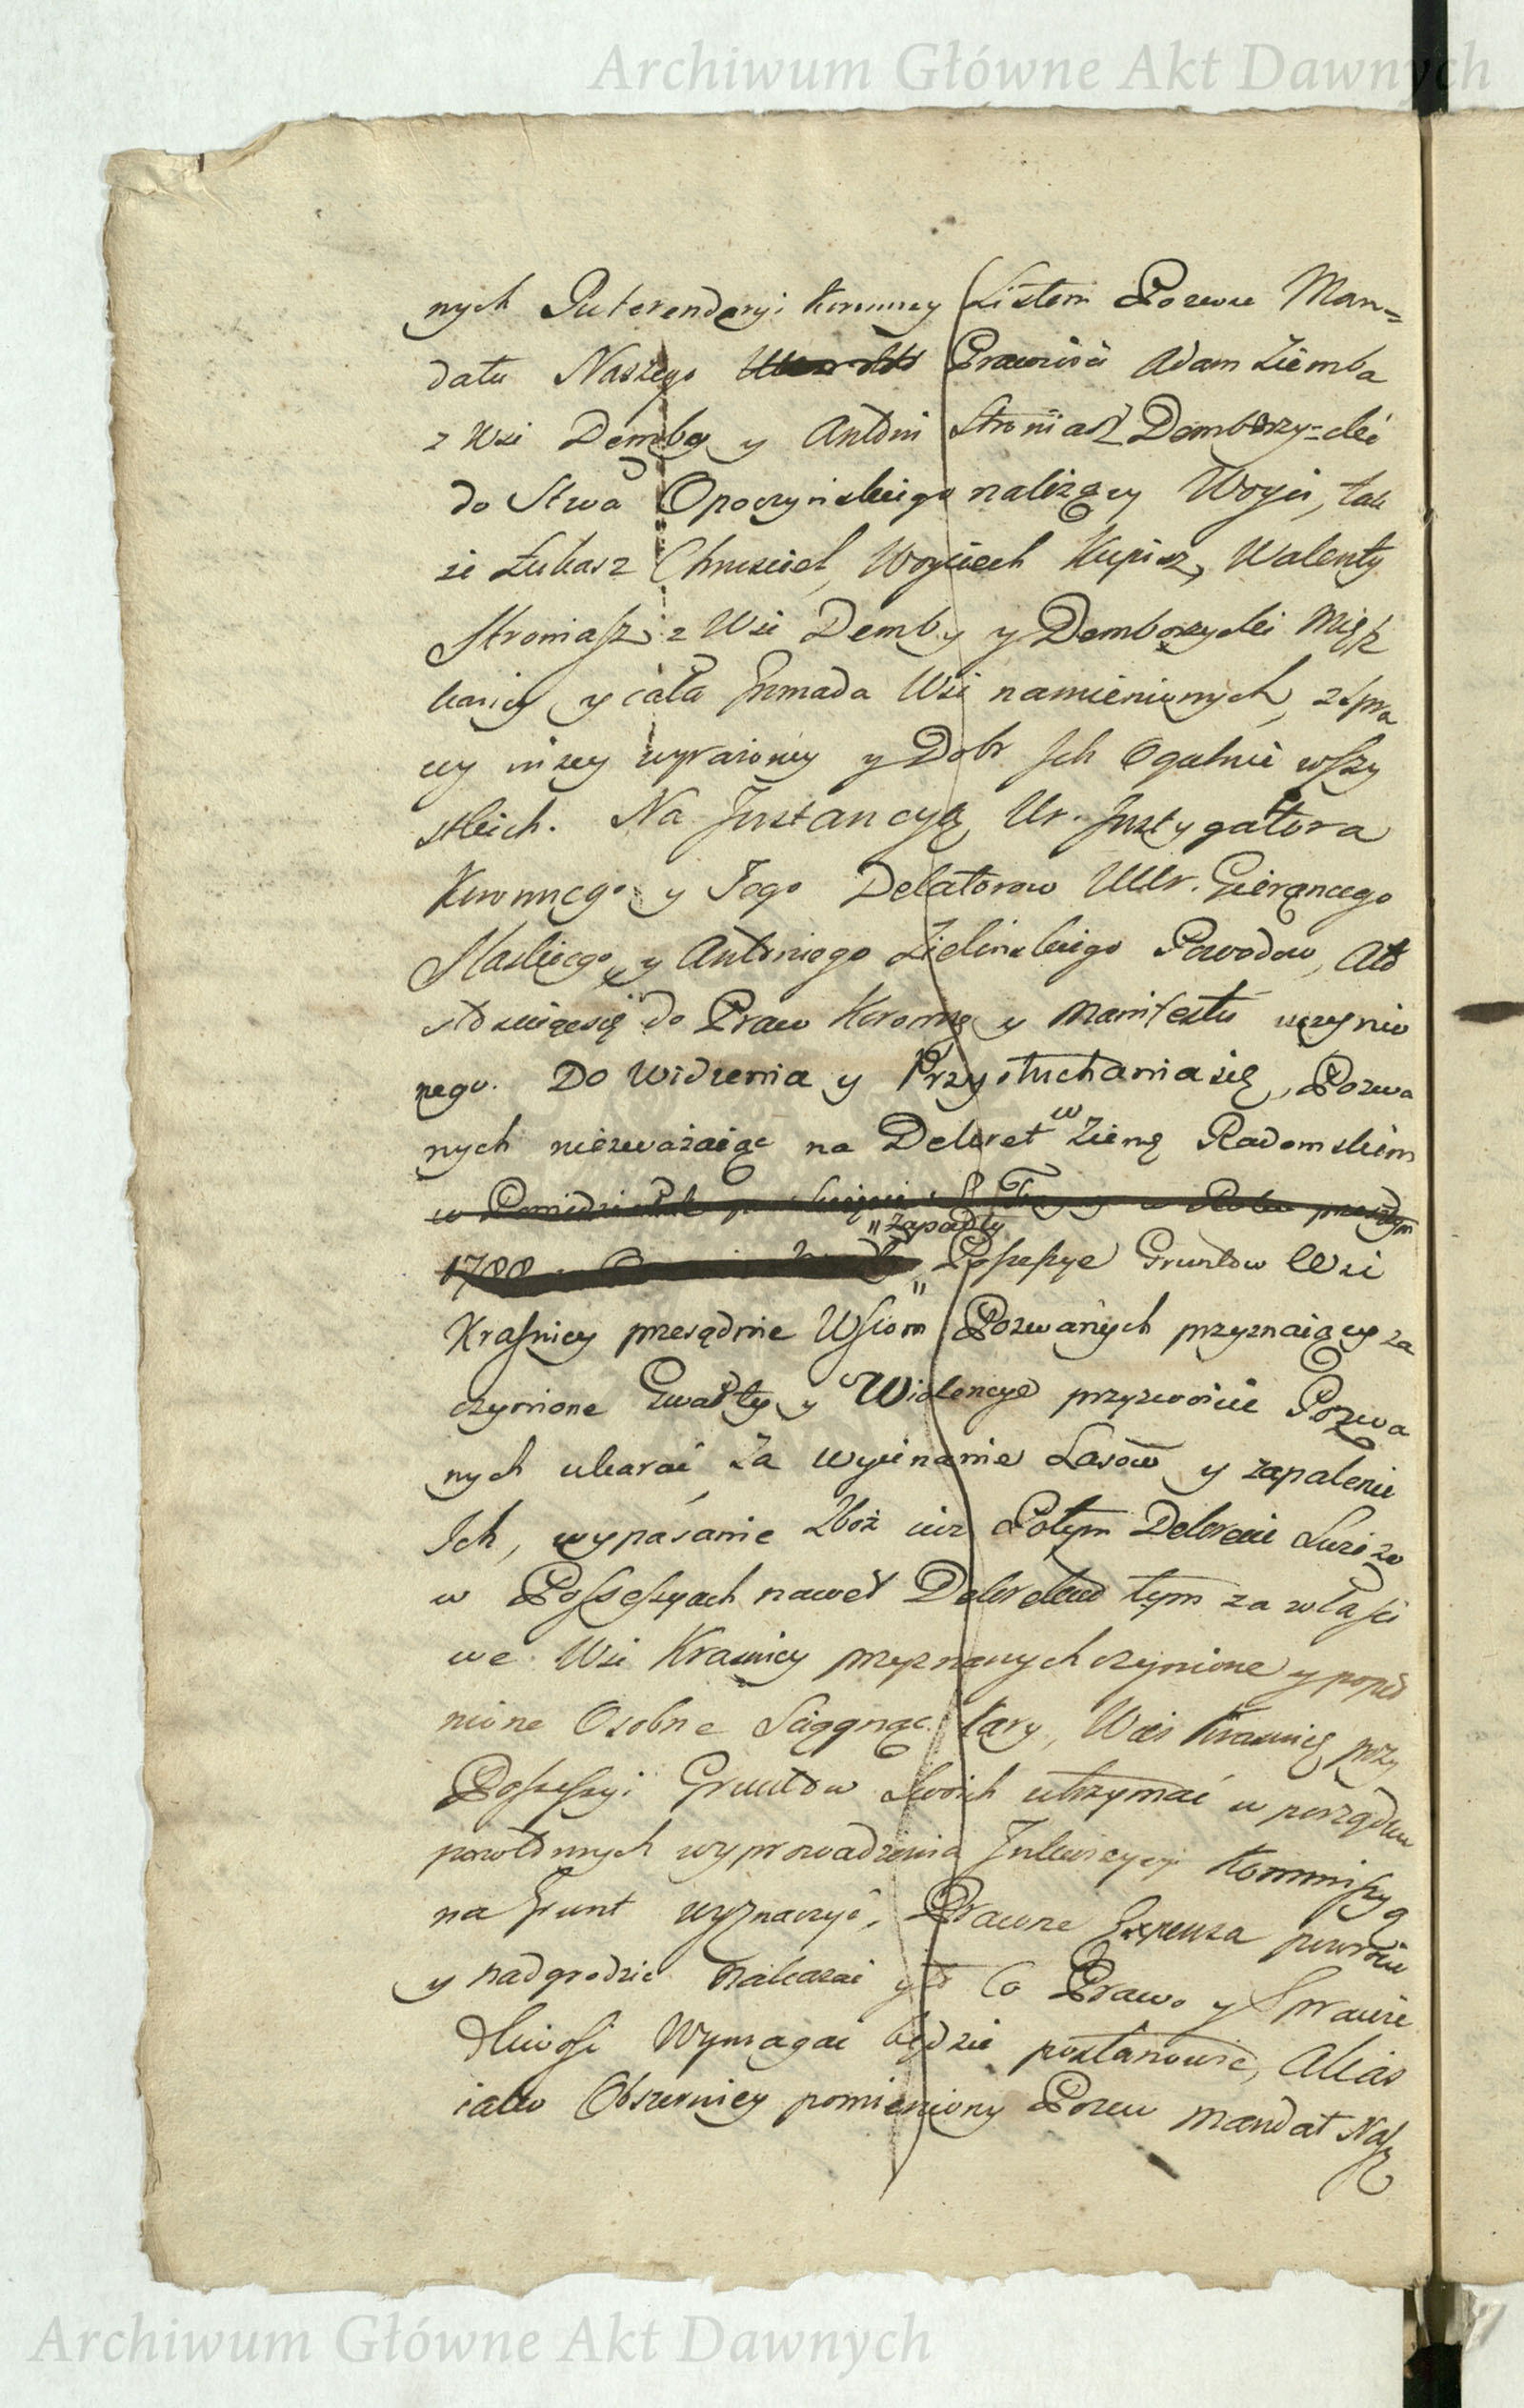 Archiwum Główne Akt Dawnych
nych Referendaryi Koronney Listem Pozwu Man=
datu Naszego Pracowici Adam Ziemba
z Wsi Demby y Antoni Stroniasz Demborzyczki
do Stwa Opoczyńskiego należący Woyci, tak
że Łukasz Chrusciel, Woyciech Kupisz, Walenty
Stroniasz z Wsi Demby y Demborzyczki Miesz
kańcy y cała Gromada Wsi namienionych, z spra
wy niżey wyrażoney y Dobr Ich Ogulnie wszy
stkich. Na Instancyą Ur. Instygatora
Koronnego y Jego Delatorow UUr.
y Antoniego Zielinskiego Powodow,
do Praw Koronnę y Manifestu uczynio
nego. Do Widzenia y Przysłuchania się, Pozwa
nych niezważaiąc na Dekret w Ziemę Radomskim
w Poniedziałek
" Zapadły
1788 Possessye Gruntow Wsi
Krasnicy przesądnie Wsiom Pozwanych przyznaiący za
czynione Gwałty y Wiolencye przyzwoicie Pozwa
nych ukarać Za wycinanie Lasow y zapalenie
Ich, wypasanie Zboż iuż Potym Dekrecie
w Possessyach nawet Dekretem tym za właści
we Wsi Krasnicy przyznanych czynione y popeł
nione Osobne Sciągnąc kary, Wieś Krasnicę przy
Possessyi Gruntow Swoich utrzymać w porządku
powtornych wyprowadzenia Inkwizycyi Kommissyą
na Grunt wyznaczyć, Prawne Expensa powrocic
y nadgrodzic nakazać y to Co Prawo y Sprawie
dliwość Wymagać będzie postanowić, Alias
iako Obszerniey pomieniony Pozew Mandat Nasz
Archiwum Główne Akt Dawnych